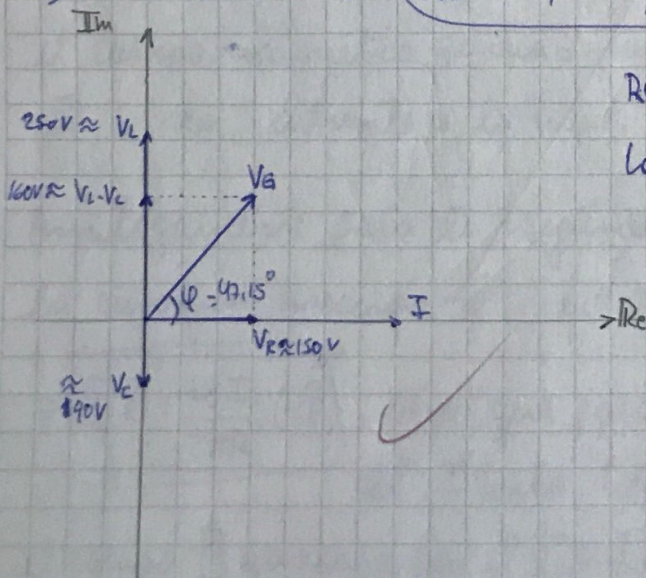 Im
250V ≈ VL
160V ≈ VL-VC
VG
φ = 47,15°
I
Re
VR≈150V
≈ VC
90V